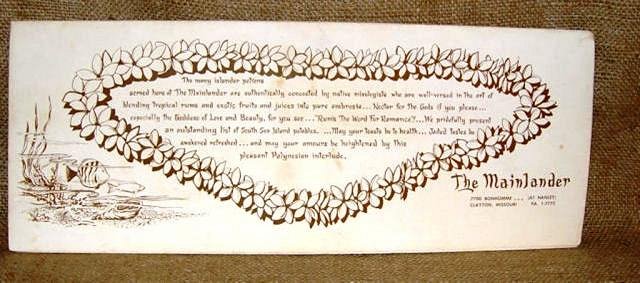 The many islander potions
served here at The Mainlander are authentically concocted by native mixologists who are well-versed in the art of
blending tropical rums and exotic fruits and juices into pure ambrosia... Nectar for the Gods if you please...
especially the Goddess of Love and Beauty, for you see... "Rumis The Word For Romance"!... We pridefully present
an outstanding list of South Sea Island potables. ...May your toasts be to health... Jaded tastes be
awakened refreshed... and may your amours be heightened by this
pleasant Polynesian interlude.
The Mainlander
7700 BONHOMME ... (AT HANLEY)
CLAYTON, MISSOURI PA. 1-7775